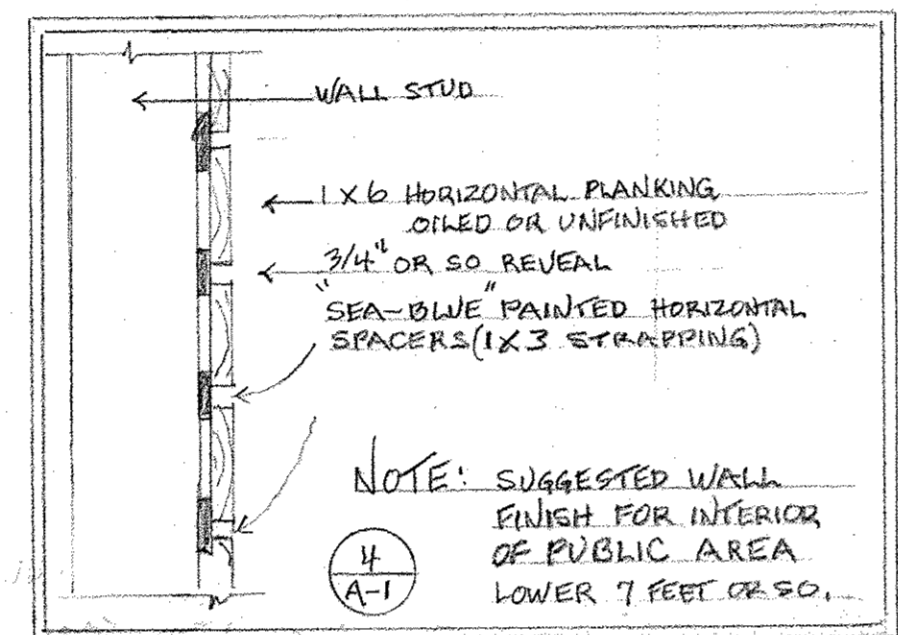 WALL STUD
1 X 6 HORIZONTAL PLANKING
OILED OR UNFINISHED
3/4" OR SO REVEAL
"SEA-BLUE" PAINTED HORIZONTAL
SPACERS (1 X 3 STRAPPING)
NOTE: SUGGESTED WALL
FINISH FOR INTERIOR
OF PUBLIC AREA
LOWER 7 FEET OR SO.
4
A-1